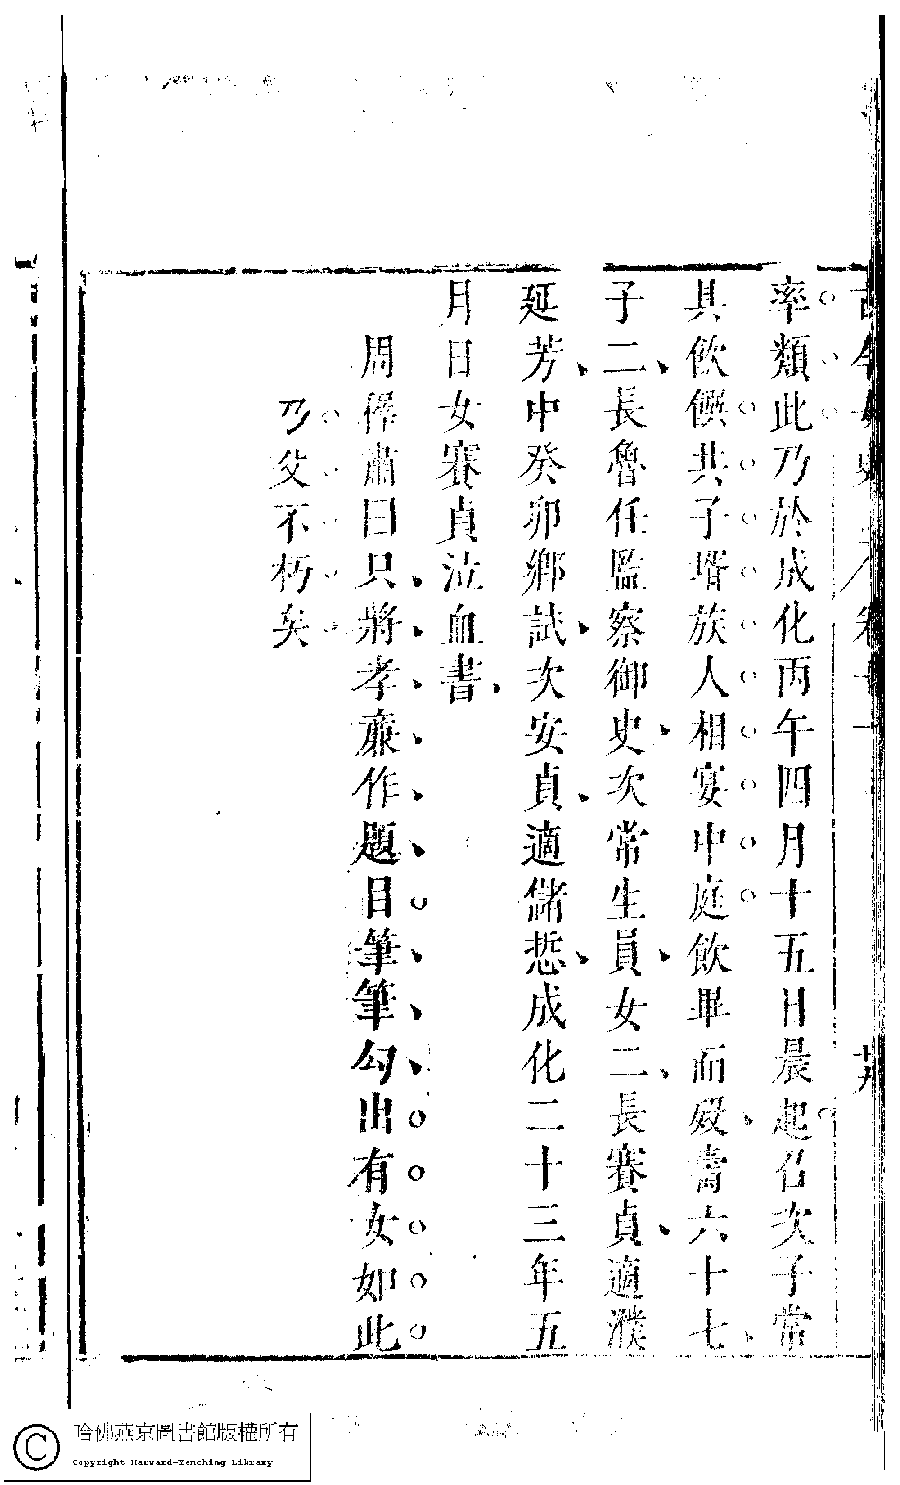 古今女史 卷十一 廿九
率類此乃於成化丙午四月十五日晨起召次子常
具飲饌共子壻族人相宴中庭飲畢而歿壽六十七
子二長魯任監察御史次常生員女二長賽貞適濮
延芳中癸卯鄉試次安貞適儲悊成化二十三年五
月日女賽貞泣血書
周穉肅曰只將孝廉作題目筆筆勾出有女如此
乃父不朽矣
哈佛燕京圖書館版權所有
Copyright Harvard-Yenching Library